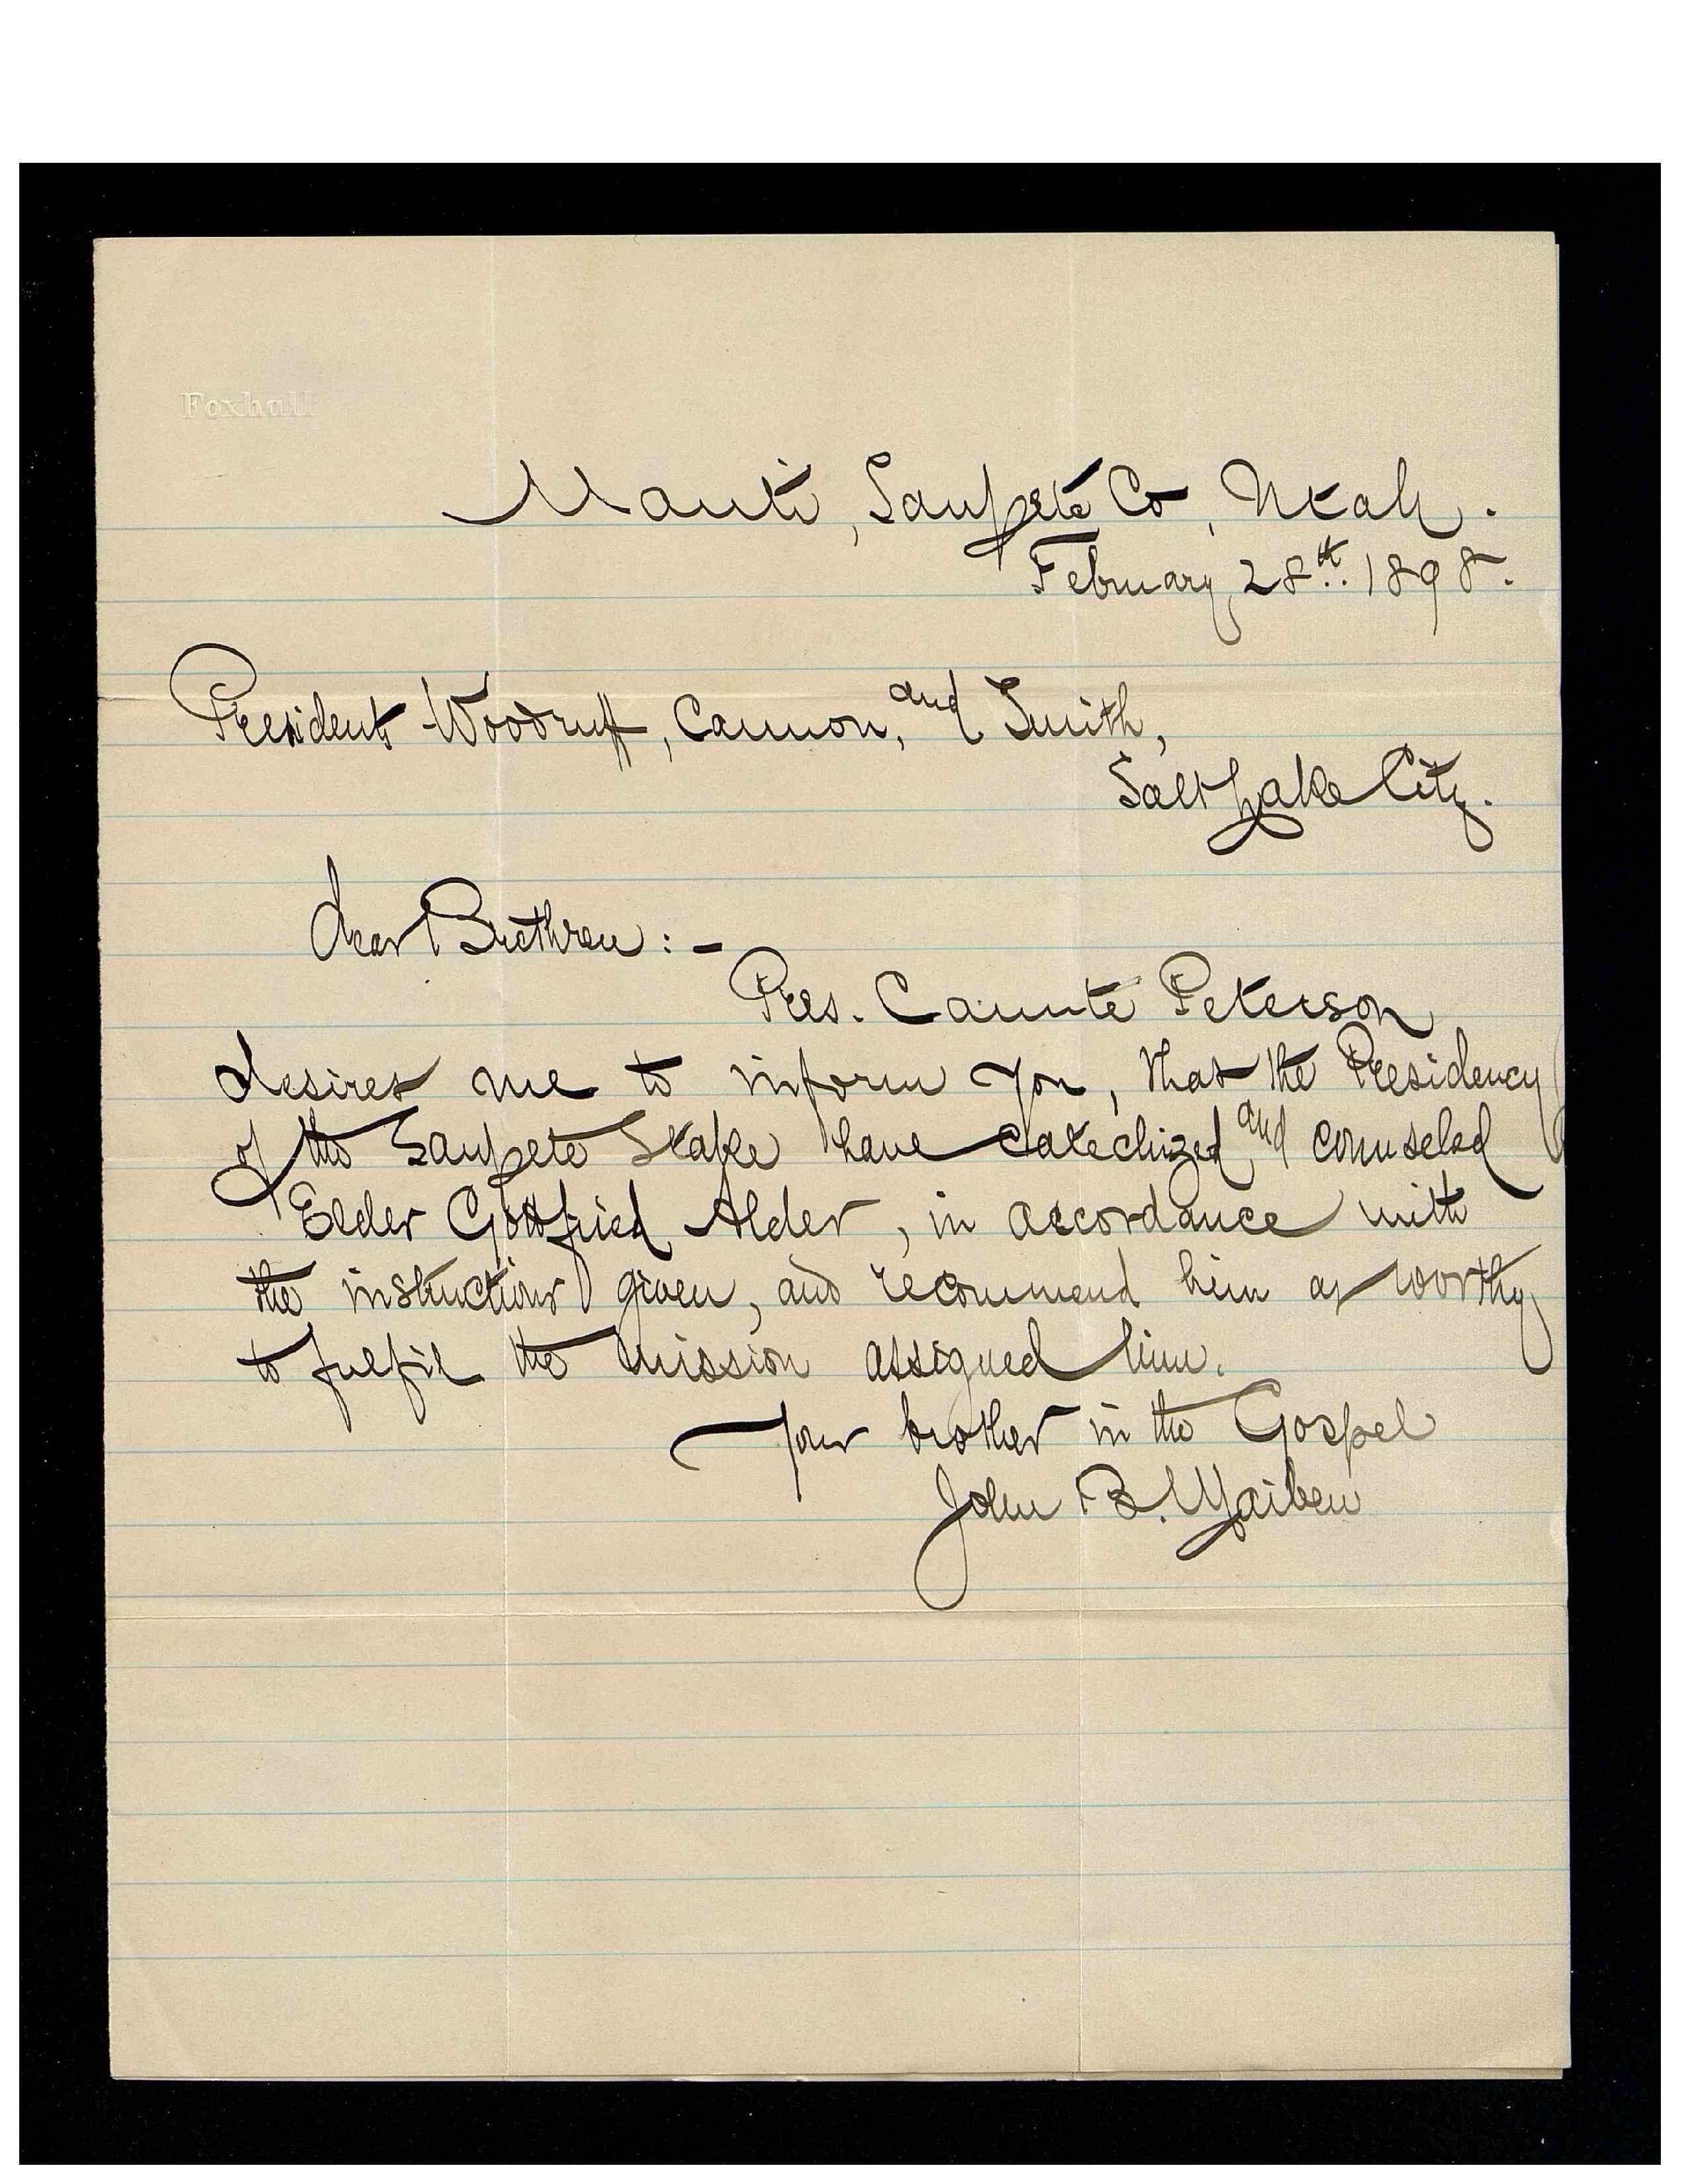 Foxhall
Manti, Sanpete Co, Utah.
February 28th. 1898.
Presidents Woodruff, Cannon, and Smith,
Salt Lake City.
Dear Brethren:-
Pres. Canute Peterson
desires me to inform you, that the Presidency
of the Sanpete Stake have catechized and counseled
Elder Gottfried Alder, in accordance with
the instructions given, and recommend him as worthy
to fulfil the mission assigned him.
Your brother in the Gospel
John B. Maiben